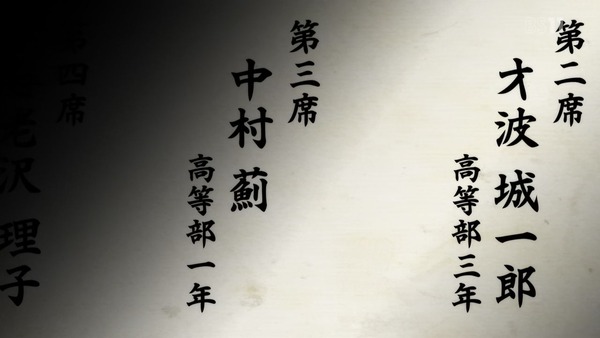 第二席
才波 城一郎
高等部三年
第三席
中村 薊
高等部一年
第四席
沢 理子